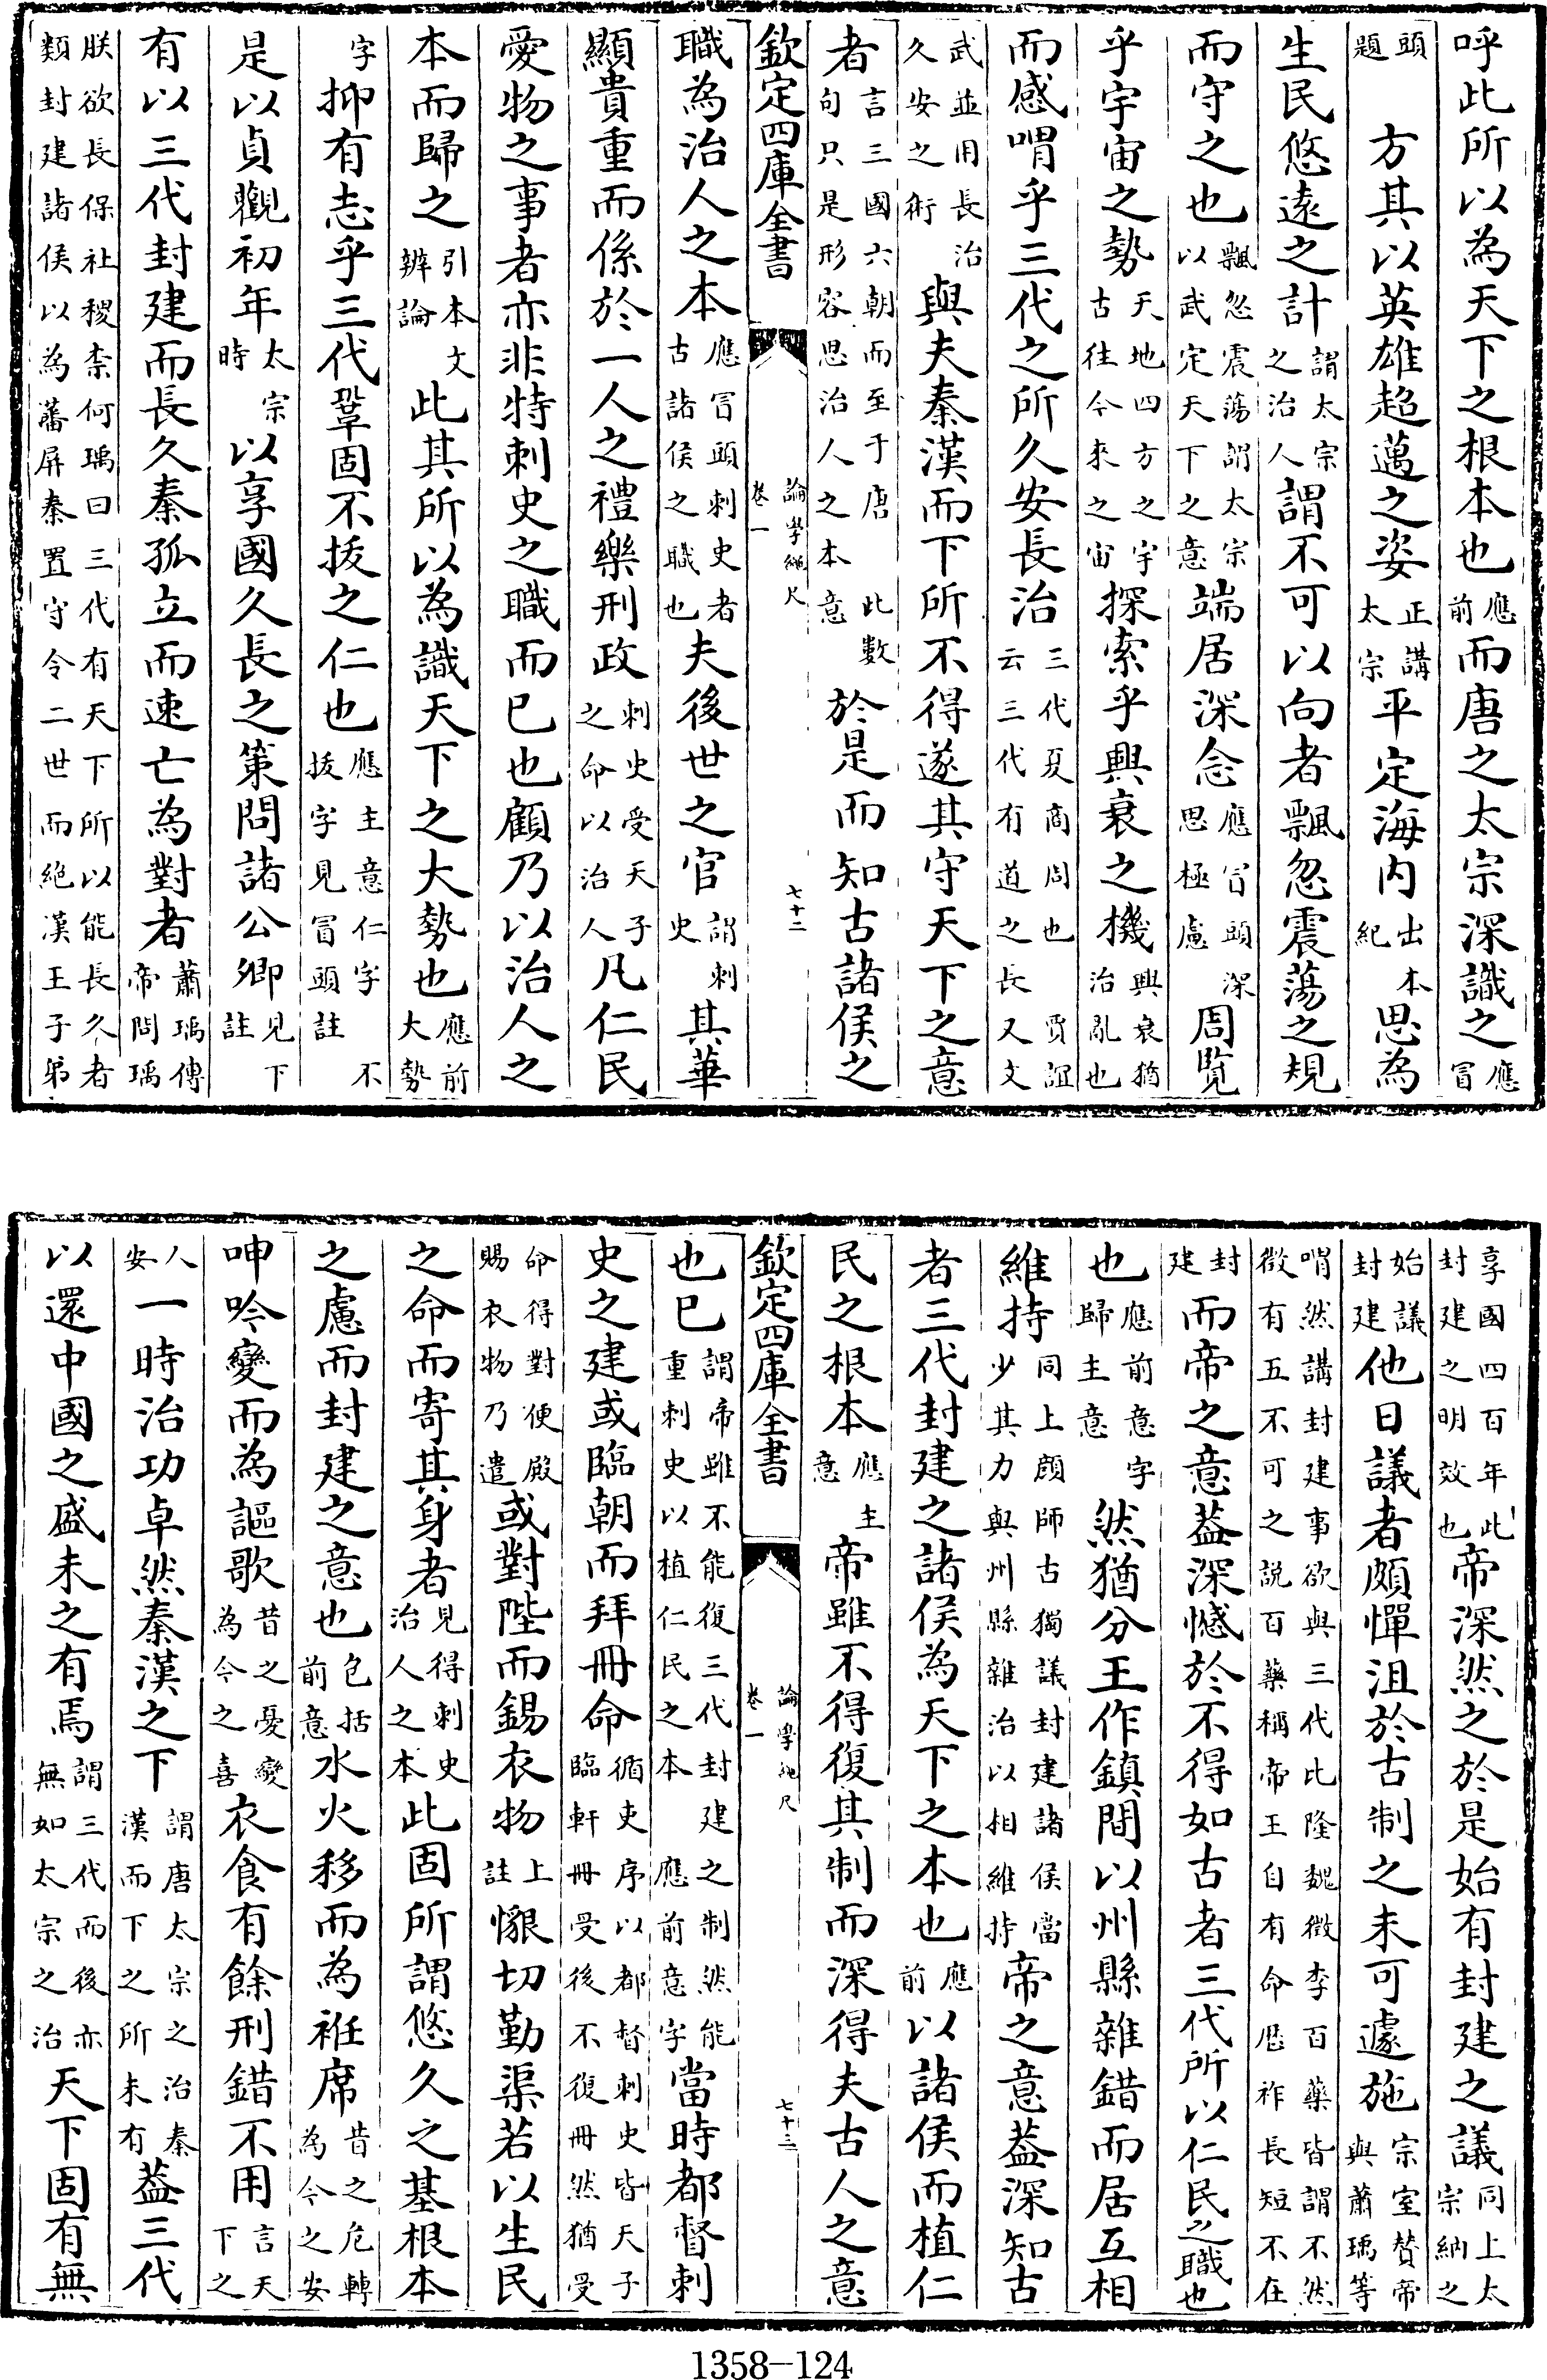 呼此所以為天下之根本也應前而唐之太宗深識之應冒
頭題方其以英雄超邁之姿正講太宗平定海內出本紀思為
生民悠遠之計謂太宗之治人謂不可以向者飄忽震蕩之規
而守之也飄忽震蕩謂太宗以武定天下之意端居深念應冒頭深思極慮周覽
乎宇宙之勢天地四方之宇古往今來之宙探索乎興衰之機興衰猶治亂也
而感喟乎三代之所久安長治三代夏商周也賈誼云三代有道之長又文
武並用長治久安之術與夫秦漢而下所不得遂其守天下之意
者言三國六朝而至于唐此數句只是形容思治人之本意於是而知古諸侯之
欽定四庫全書 論學繩尺 卷一 七十二
職為治人之本應冒頭刺史者古諸侯之職也夫後世之官謂刺史其華
顯貴重而係於一人之禮樂刑政刺史受天子之命以治人凡仁民
愛物之事者亦非特刺史之職而已也顧乃以治人之
本而歸之引本文辨論此其所以為識天下之大勢也應前大勢
字抑有志乎三代鞏固不拔之仁也應主意仁字不拔字見冒頭註
是以貞觀初年太宗時以享國久長之策問諸公卿見下註
有以三代封建而長久秦孤立而速亡為對者蕭瑀傳帝問瑀
朕欲長保社稷柰何瑀曰三代有天下所以能長久者類封建諸侯以為藩屏秦置守令二世而絕漢王子弟
享國四百年此封建之明效也帝深然之於是始有封建之議同上太宗納之
始議封建他日議者頗憚沮於古制之未可遽施宗室贊帝與蕭瑀等
喟然講封建事欲與三代比隆魏徵李百藥皆謂不然徵有五不可之說百藥稱帝王自有命厯祚長短不在
封建而帝之意葢深憾於不得如古者三代所以仁民之職也
也應前意字歸主意然猶分王作鎮間以州縣雜錯而居互相
維持同上顔師古獨議封建諸侯當少其力與州縣雜治以相維持帝之意葢深知古
者三代封建之諸侯為天下之本也應前以諸侯而植仁
民之根本應主意帝雖不得復其制而深得夫古人之意
欽定四庫全書 論學繩尺 卷一 七十三
也已謂帝雖不能復三代封建之制然能重刺史以植仁民之本應前意字當時都督刺
史之建或臨朝而拜冊命循吏序以都督刺史皆天子臨軒冊受後不復冊然猶受
命得對便殿賜衣物乃遣或對陛而錫衣物上註懇切勤渠若以生民
之命而寄其身者見得刺史治人之本此固所謂悠久之基根本
之慮而封建之意也包括前意水火移而為袵席昔之危轉為今之安
呻吟變而為謳歌昔之憂變為今之喜衣食有餘刑錯不用言天下之
人安一時治功卓然秦漢之下謂唐太宗之治秦漢而下之所未有葢三代
以還中國之盛未之有焉謂三代而後亦無如太宗之治天下固有無
1358-124